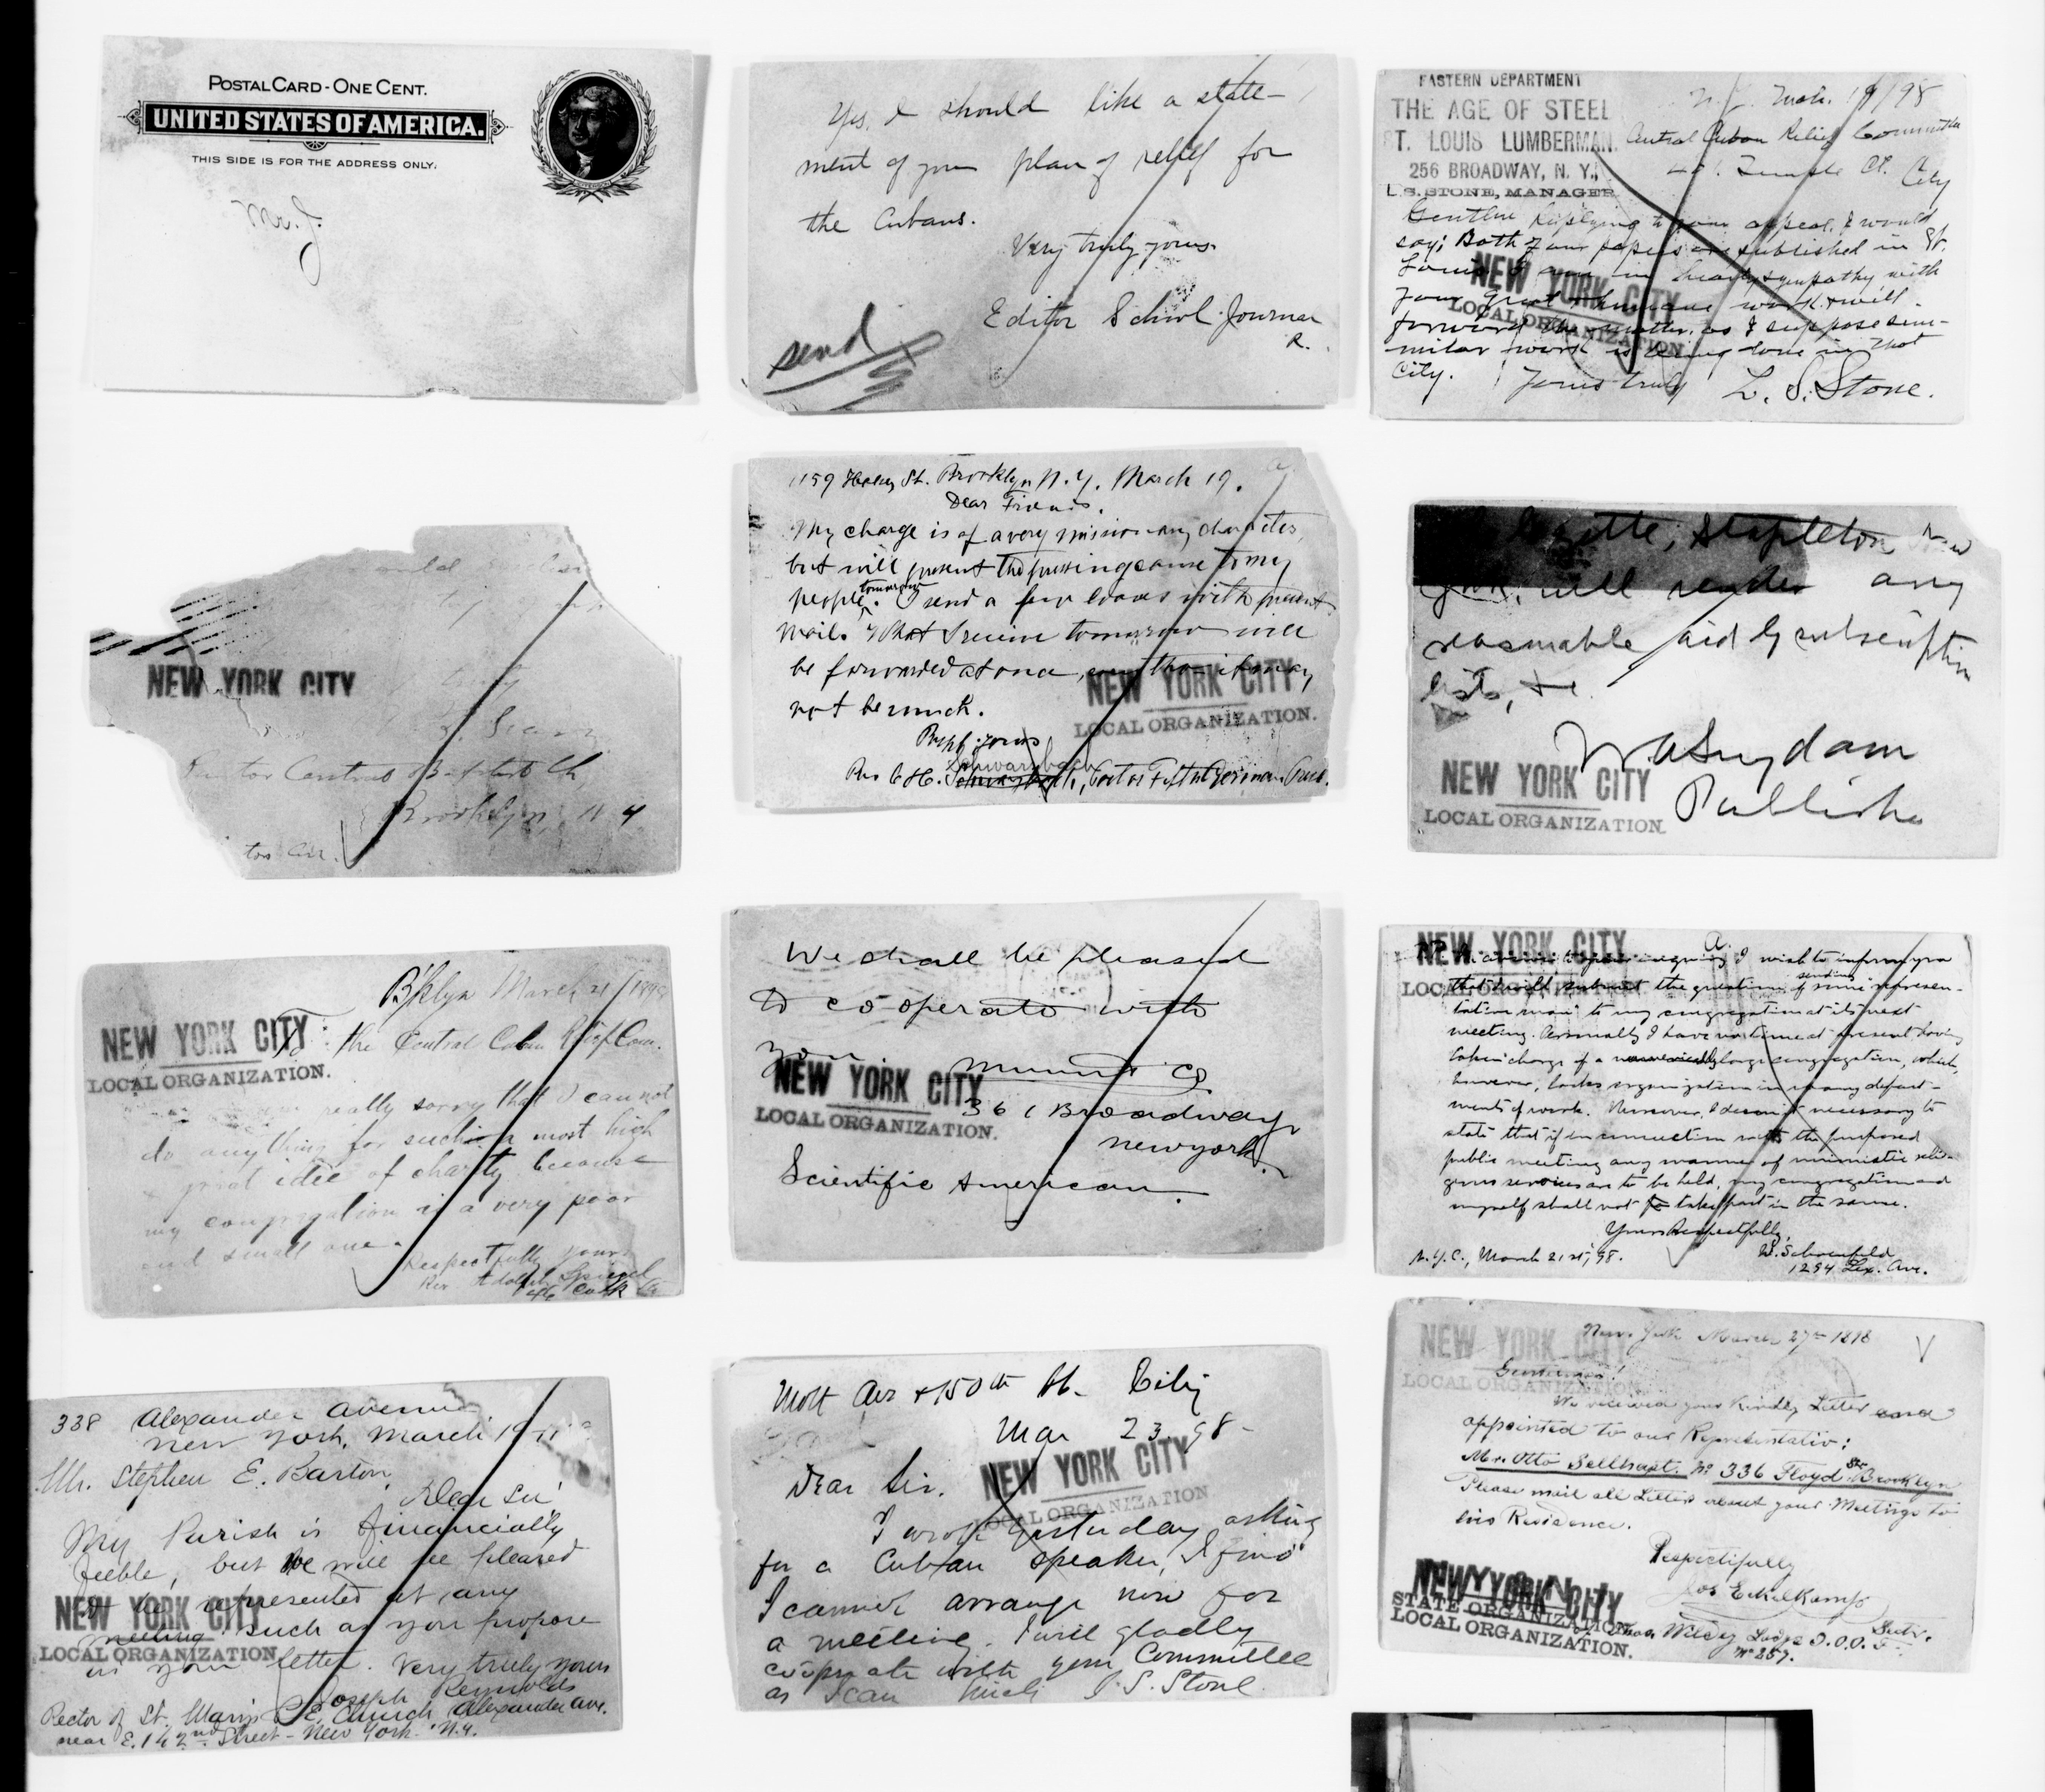 POSTAL CARD - ONE CENT.
UNITED STATES OF AMERICA.
THIS SIDE IS FOR THE ADDRESS ONLY.
Mr. J.
Yes, I should like a state-
ment of your plan of relief for
the Cubans.
Very truly yours.
Editor School Journal
R.
send
EASTERN DEPARTMENT
THE AGE OF STEEL
ST. LOUIS LUMBERMAN.
256 BROADWAY, N. Y.
L. S. STONE, MANAGER
N. Y. Mch. 19/98
Central Cuban Relief Committee
Temple Ct. City
Gentlm Replying to your appeal, I would
say; Both of our papers are published in St.
Louis I am in hearty sympathy with
your great & humane work & will
forward the matter, as I suppose sim-
milar work is being done in that
City. Yours truly L. S. Stone.
NEW YORK CITY
LOCAL ORGANIZATION.
NEW YORK CITY
Pastor Central Baptist Ch,
Brooklyn, N Y
1159 St. Brooklyn N.Y. March 19.
Dear Friends.
My charge is of a very missionary character,
but will present the pressing cause to my
people tomorrow. I send a few with present
mail. What I receive tomorrow will
be forwarded at once, even tho it may
not be much.
Respf. yours
Schwarzbach
Rev C. H. Pastor Fifth German Pres.
NEW YORK CITY
LOCAL ORGANIZATION.
Gazette, Stapleton New
York, will render any
reasonable aid by subscription
lists, &c.
Publisher
NEW YORK CITY
LOCAL ORGANIZATION.
B'klyn March 21/1898
To the Central Cuban Relief Com.
NEW YORK CITY
LOCAL ORGANIZATION.
really sorry that I cannot
do any thing for such a most high
& great idee of charity because
my congregation is a very poor
and small one.
Respectfully yours
Rev. Adolph Spiegel
We shall be pleased
to co-operate with
you.
Munn & Co
361 Broadway
New york.
Scientific American.
NEW YORK CITY
LOCAL ORGANIZATION.
NEW YORK CITY
LOCAL ORGANIZATION.
In answer to your inquiry I wish to inform you
that I will submit the question of sending some represen-
tative man to my congregation at its next
meeting. Personally I have no time at present having
taken charge of a numerically large congregation, which,
however, lacks organization in many depart-
ments of work. Moreover, I deem it necessary to
state that if in connection with the purposed
public meeting any manner of unionistic reli-
gious services are to be held, my congregation and
myself shall not take part in the same.
Yours Respectfully,
N.Y.C., March 21st, '98. W. Schoenfeld
1294 Lex. Ave.
338 Alexander Avenue
New York, March 19
Mr. Stephen E. Barton
Dear Sir
My Parish is financially
feeble, but we will be pleased
to be represented at any
meeting such as you propose
in your letter. Very truly yours
Joseph Reynolds
Rector of St. Mary's P. E. Church Alexander ave.
near E. 142nd Street - New York. N.Y.
NEW YORK CITY
LOCAL ORGANIZATION
Mott Ave & 150th St. City
Mar 23. 98-
Dear Sir.
I wrote yesterday asking
for a Cuban speaker, I find
I cannot arrange now for
a meeting. I will gladly
cooperate with your Committee
as I can. S. Stone.
NEW YORK CITY
LOCAL ORGANIZATION
New York March 27th 1898
Gentlemen!
We received your kindly Letter and
appointed to our Representativ:
Mr. Otto Sellhast. No 336 Floyd Str. Brooklyn
Please mail all Letters about your Meetings to
his Residence.
Respectifully
Jos Eckelkamp
Secty.
of Thos Wildey Lodge I.O.O.F.
No 257.
NEW YORK CITY
LOCAL ORGANIZATION
NEW YORK CITY
STATE ORGANIZATION
LOCAL ORGANIZATION.